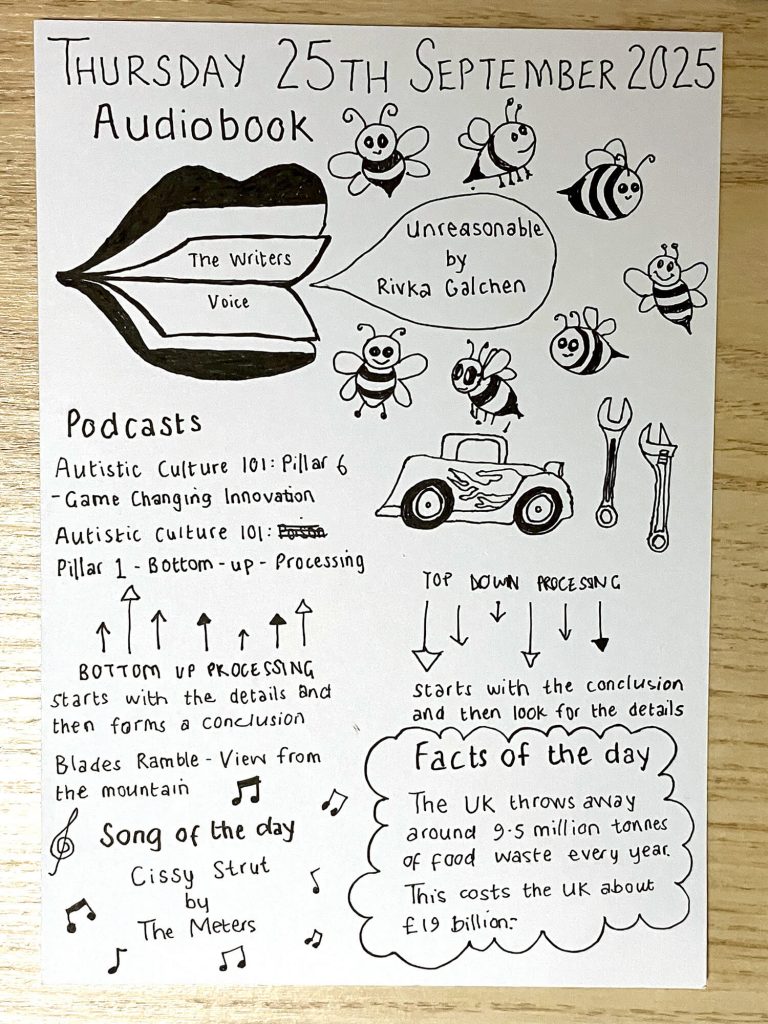 THURSDAY 25TH SEPTEMBER 2025
Audiobook
The Writers
Voice
Unreasonable
by
Rivka Galchen
Podcasts
Autistic Culture 101: Pillar 6
- Game Changing Innovation
Autistic Culture 101:
Pillar 1 - Bottom - up - Processing
BOTTOM UP PROCESSING
starts with the details and
then forms a conclusion
TOP DOWN PROCESSING
starts with the conclusion
and then look for the details
Blades Ramble - View from
the mountain
Song of the day
Cissy Strut
by
The Meters
Facts of the day
The UK throws away
around 9.5 million tonnes
of food waste every year.
This costs the UK about
£19 billion.